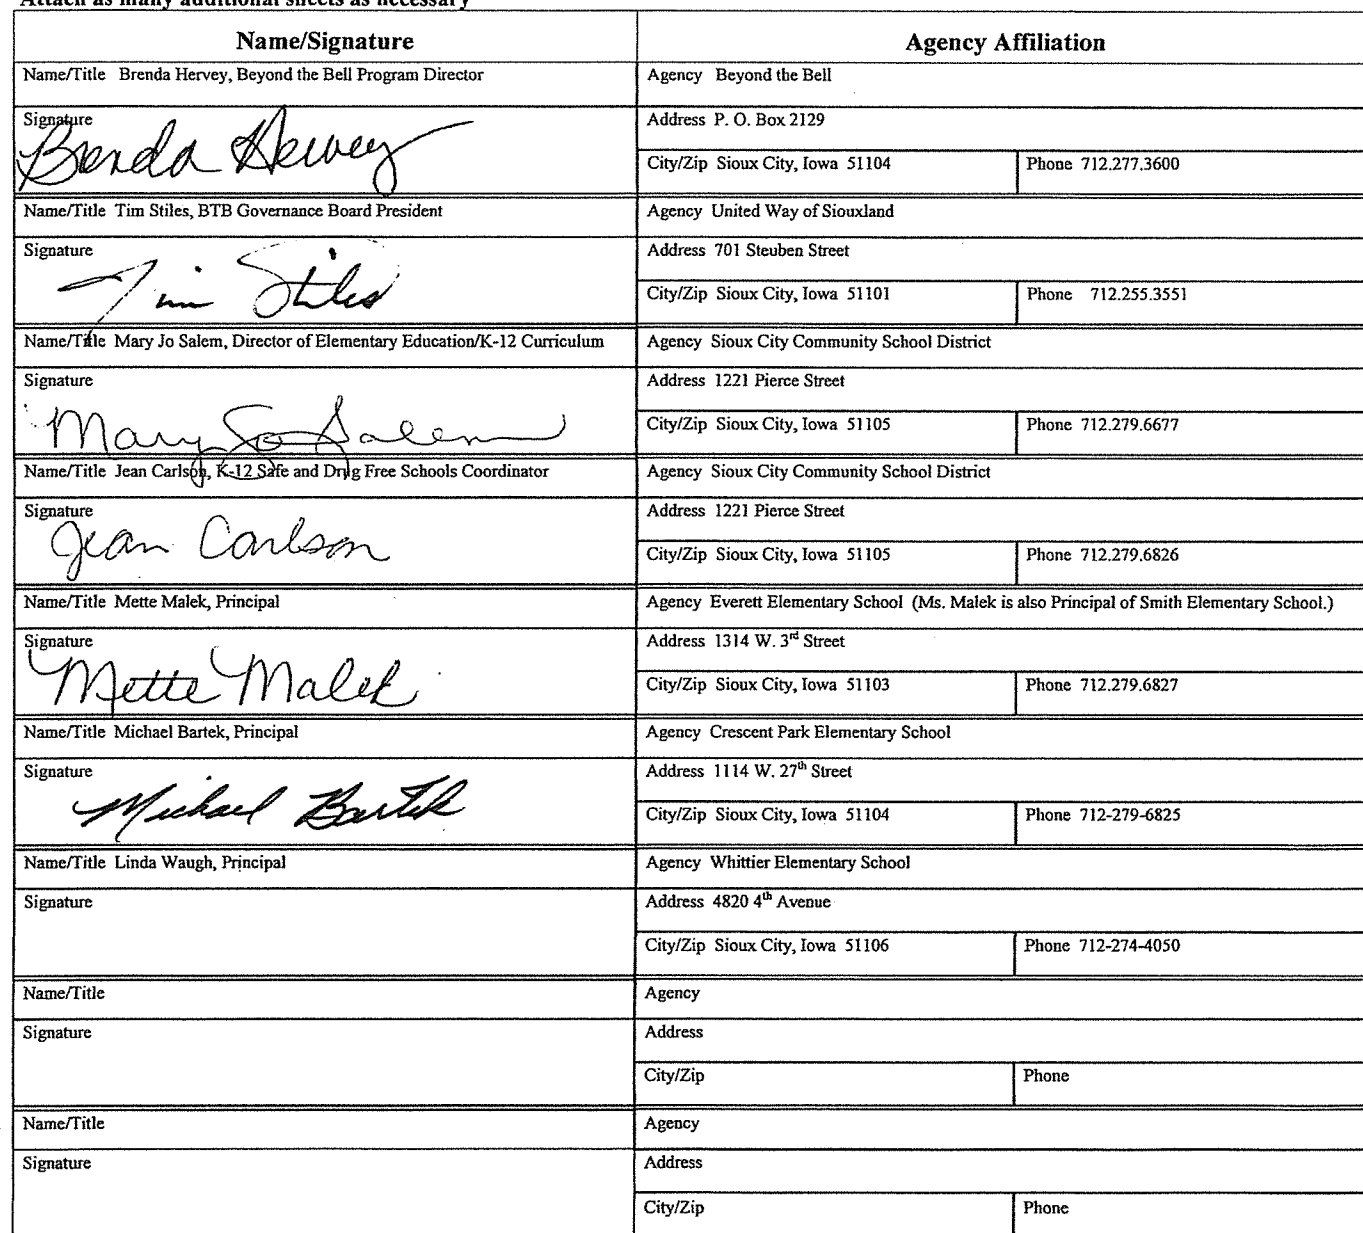 Attach as many additional sheets as necessary
Name/Signature
Agency Affiliation
Name/Title Brenda Hervey, Beyond the Bell Program Director
Agency Beyond the Bell
Signature
Brenda Hervey
Address P. O. Box 2129
City/Zip Sioux City, Iowa 51104
Phone 712.277.3600
Name/Title Tim Stiles, BTB Governance Board President
Agency United Way of Siouxland
Signature
Tim Stiles
Address 701 Steuben Street
City/Zip Sioux City, Iowa 51101
Phone 712.255.3551
Name/Title Mary Jo Salem, Director of Elementary Education/K-12 Curriculum
Agency Sioux City Community School District
Signature
Mary Jo Salem
Address 1221 Pierce Street
City/Zip Sioux City, Iowa 51105
Phone 712.279.6677
Name/Title Jean Carlson, K-12 Safe and Drug Free Schools Coordinator
Agency Sioux City Community School District
Signature
Jean Carlson
Address 1221 Pierce Street
City/Zip Sioux City, Iowa 51105
Phone 712.279.6826
Name/Title Mette Malek, Principal
Agency Everett Elementary School (Ms. Malek is also Principal of Smith Elementary School.)
Signature
Mette Malek
Address 1314 W. 3rd Street
City/Zip Sioux City, Iowa 51103
Phone 712.279.6827
Name/Title Michael Bartek, Principal
Agency Crescent Park Elementary School
Signature
Michael Bartek
Address 1114 W. 27th Street
City/Zip Sioux City, Iowa 51104
Phone 712-279-6825
Name/Title Linda Waugh, Principal
Agency Whittier Elementary School
Signature
Address 4820 4th Avenue
City/Zip Sioux City, Iowa 51106
Phone 712-274-4050
Name/Title
Agency
Signature
Address
City/Zip
Phone
Name/Title
Agency
Signature
Address
City/Zip
Phone